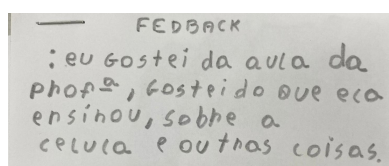 FEDBACK
: eu Gostei da aula da
phofª, Gostei do que eca
ensinou, sobhe a
celuca e outhas coisas.